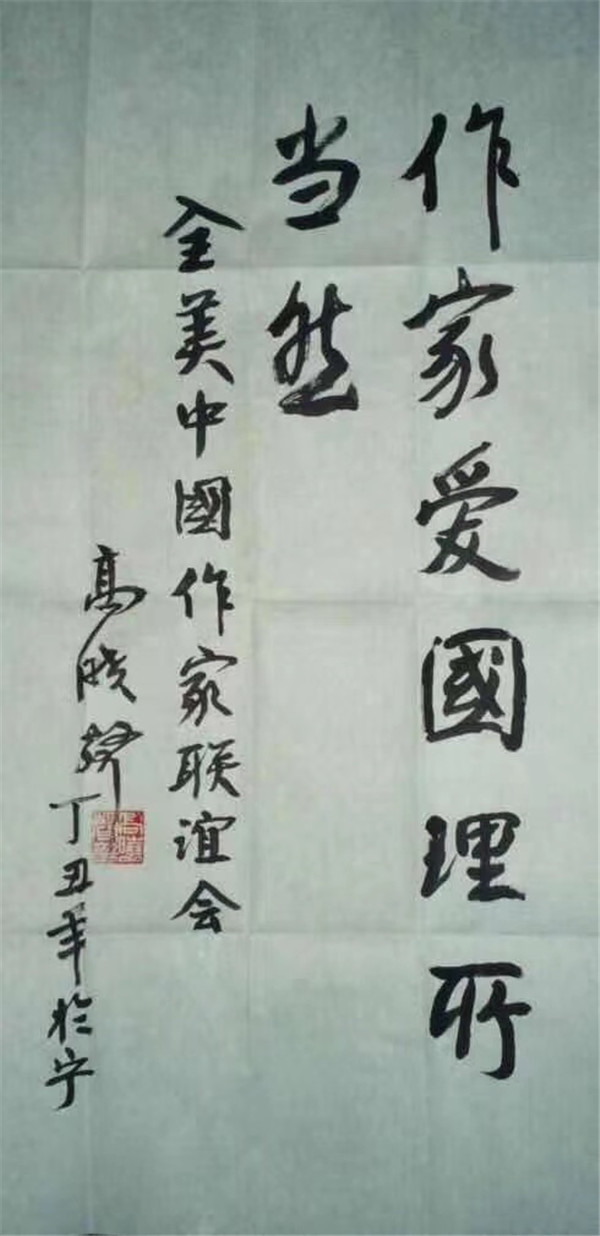 作家爱國理所
当然
全美中國作家联谊会
高晓聲
丁丑年於宁